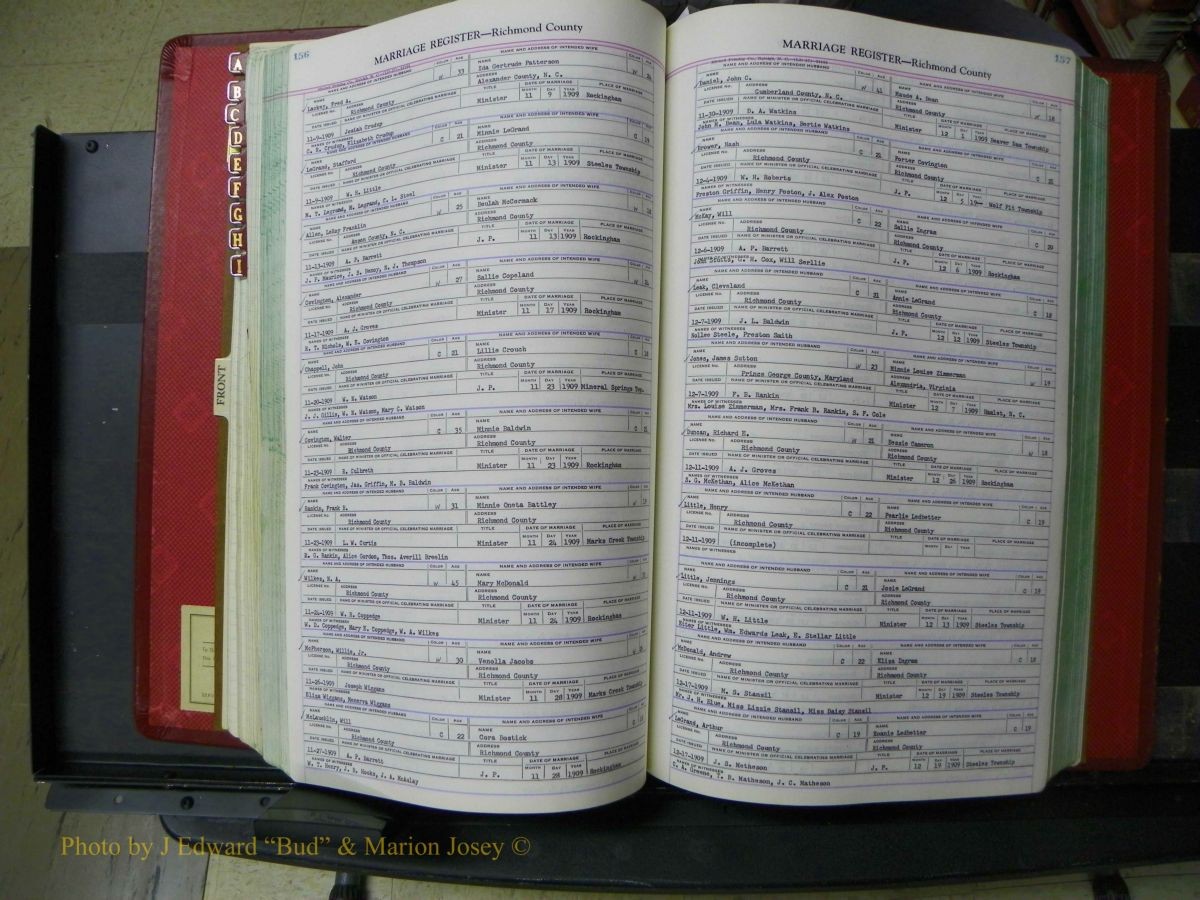 156
MARRIAGE REGISTER—Richmond County
NAME AND ADDRESS OF INTENDED HUSBAND COLOR AGE NAME AND ADDRESS OF INTENDED WIFE
Lackey, Fred A. W 33 Ida Gertrude Patterson W 24
Richmond County Alexander County, N. C.
11-9-1909 Josiah Crudup Minister 11 9 1909 Rockingham
C. E. Crudup, Elizabeth Crudup
LeGrand, Stafford C 21 Minnie LeGrand C 19
Richmond County Richmond County
11-9-1909 W. H. Little Minister 11 13 1909 Steeles Township
N. T. LeGrand, M. LeGrand, C. L. Steel
Allen, LeRoy Franklin W 25 Beulah McCormack W 18
Anson County, N. C. Richmond County
11-13-1909 A. P. Barrett J. P. 11 13 1909 Rockingham
J. P. Maurice, J. S. Haney, N. J. Thompson
Covington, Alexander W 27 Sallie Copeland W 24
Richmond County Richmond County
11-17-1909 A. J. Groves Minister 11 17 1909 Rockingham
H. T. Nichols, W. E. Covington
Chappell, John C 21 Lillie Crouch C 18
Richmond County Richmond County
11-20-1909 W. N. Watson J. P. 11 23 1909 Mineral Springs Twp.
J. J. Gillis, W. H. Watson, Mary C. Watson
Covington, Walter C 35 Minnie Baldwin C 21
Richmond County Richmond County
11-23-1909 R. Culbreth Minister 11 23 1909 Rockingham
Frank Covington, Jas. Griffin, M. B. Baldwin
Rankin, Frank B. W 31 Minnie Oneta Battley W 19
Richmond County Richmond County
11-23-1909 L. W. Curtis Minister 11 24 1909 Marks Creek Township
R. G. Rankin, Alice Gordon, Thos. Averill Breslin
Wilkes, H. A. W 45 Mary McDonald W
Richmond County Richmond County
11-24-1909 W. R. Coppedge Minister 11 24 1909 Rockingham
W. D. Coppedge, Mary E. Coppedge, W. A. Wilkes
McPherson, Willie, Jr. W 30 Venolla Jacobs W
Richmond County Richmond County
11-26-1909 Joseph Wiggans Minister 11 28 1909 Marks Creek Township
Eliza Wiggans, Menerva Wiggans
McLaucklin, Will C 22 Cora Bostick C
Richmond County Richmond County
11-27-1909 A. P. Barrett J. P. 11 28 1909 Rockingham
W. T. Henry, J. B. Hooks, J. A. McAulay
157
MARRIAGE REGISTER—Richmond County
Daniel, John C. W 41 Maude A. Dean W 18
Cumberland County, N. C. Richmond County
11-30-1909 D. A. Watkins Minister 12 1909 Beaver Dam Township
John R. Dean, Lula Watkins, Bertie Watkins
Brower, Nash C 21 Porter Covington C 21
Richmond County Richmond County
12-4-1909 W. H. Roberts J. P. 12 5 19— Wolf Pit Township
Preston Griffin, Henry Poston, J. Alex Poston
McKay, Will C 22 Sallie Ingram C 20
Richmond County Richmond County
12-6-1909 A. P. Barrett J. P. 12 6 1909 Rockingham
G. H. Cox, Will Serllie
Leak, Cleveland C 21 Annie LeGrand C 18
Richmond County Richmond County
12-7-1909 J. L. Baldwin J. P. 12 12 1909 Steeles Township
Nollee Steele, Preston Smith
Jones, James Sutton W 23 Minnie Louise Zimmerman W 19
Prince George County, Maryland Alexandria, Virginia
12-7-1909 F. B. Rankin Minister 12 7 1909 Hamlet, N. C.
Mrs. Louise Zimmerman, Mrs. Frank B. Rankin, S. F. Cole
Duncan, Richard E. W 21 Bessie Cameron W 18
Richmond County Richmond County
12-11-1909 A. J. Groves Minister 12 26 1909 Rockingham
S. G. McKethan, Alice McKethan
Little, Henry C 22 Pearlie Ledbetter C 19
Richmond County Richmond County
12-11-1909 (incomplete)
Little, Jennings C 21 Josie LeGrand C 19
Richmond County Richmond County
12-11-1909 W. H. Little Minister 12 13 1909 Steeles Township
Etter Little, Wm. Edwards Leak, E. Stellar Little
McDonald, Andrew C 22 Eliza Ingram C 18
Richmond County Richmond County
12-17-1909 M. G. Stansil Minister 12 19 1909 Steeles Township
Mr. J. H. Blue, Miss Lizzie Stansil, Miss Daisy Stansil
LeGrand, Arthur C 19 Roanie Ledbetter C 19
Richmond County Richmond County
12-17-1909 J. S. Metheson J. P. 12 19 1909 Steeles Township
C. A. Greene, T. B. Matheson, J. C. Matheson
A
B
C
D
E
F
G
H
I
FRONT
Photo by J Edward “Bud” & Marion Josey ©